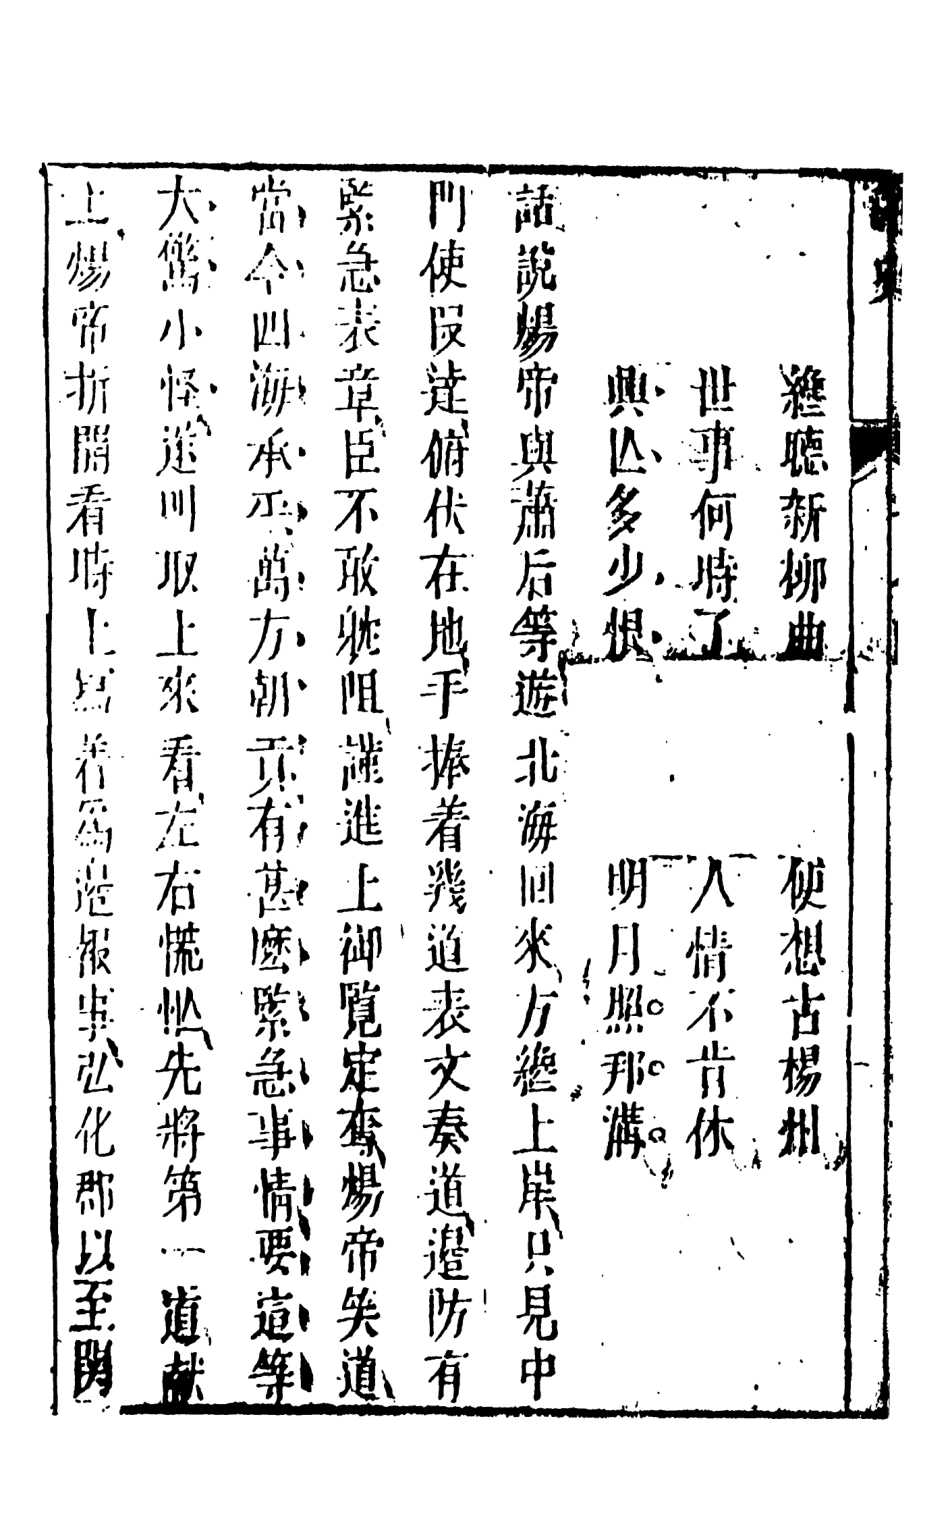 纔聽新柳曲　便想古楊州
世事何時了　人情不肯休
興亾多少恨　明月照邗溝
話說煬帝與蕭后等遊北海回來方纔上岸只見中
門使段達俯伏在地手捧着幾道表文奏道邊防有
緊急表章臣不敢躭阻謹進上御覽定奪煬帝笑道
當今四海承平萬方朝貢有甚麽緊急事情要這等
大驚小怪遂叫取上來看左右慌忙先將第一道献
上煬帝折開看時上寫着爲邊報事弘化郡以至関